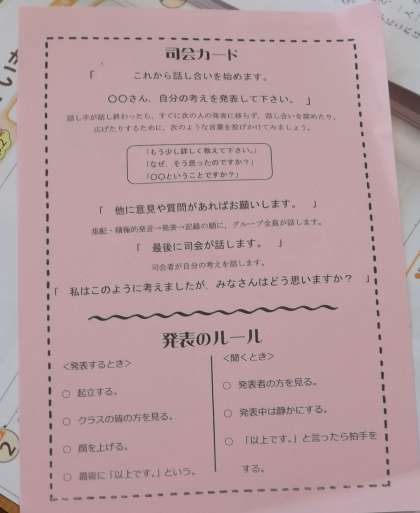 司会カード
「 これから話し合いを始めます。
〇〇さん、自分の考えを発表して下さい。 」
話し手が話し終わったら、すぐに次の人の発表に移らず、話し合いを深めたり、
広げたりするために、次のような言葉を投げかけてみましょう。
「もう少し詳しく教えて下さい。」
「なぜ、そう思ったのですか？」
「〇〇ということですか？」
「 他に意見や質問があればお願いします。 」
・積極的発言→発表→記録の順に、グループ全員が話します。
「 最後に司会が話します。 」
司会者が自分の考えを話します。
「 私はこのように考えましたが、みなさんはどう思いますか？ 」
発表のルール
＜発表するとき＞
〇 起立する。
〇 クラスの皆の方を見る。
〇 顔を上げる。
〇 最後に「以上です。」という。
＜聞くとき＞
〇 発表者の方を見る。
〇 発表中は静かにする。
〇 「以上です。」と言ったら拍手を
する。